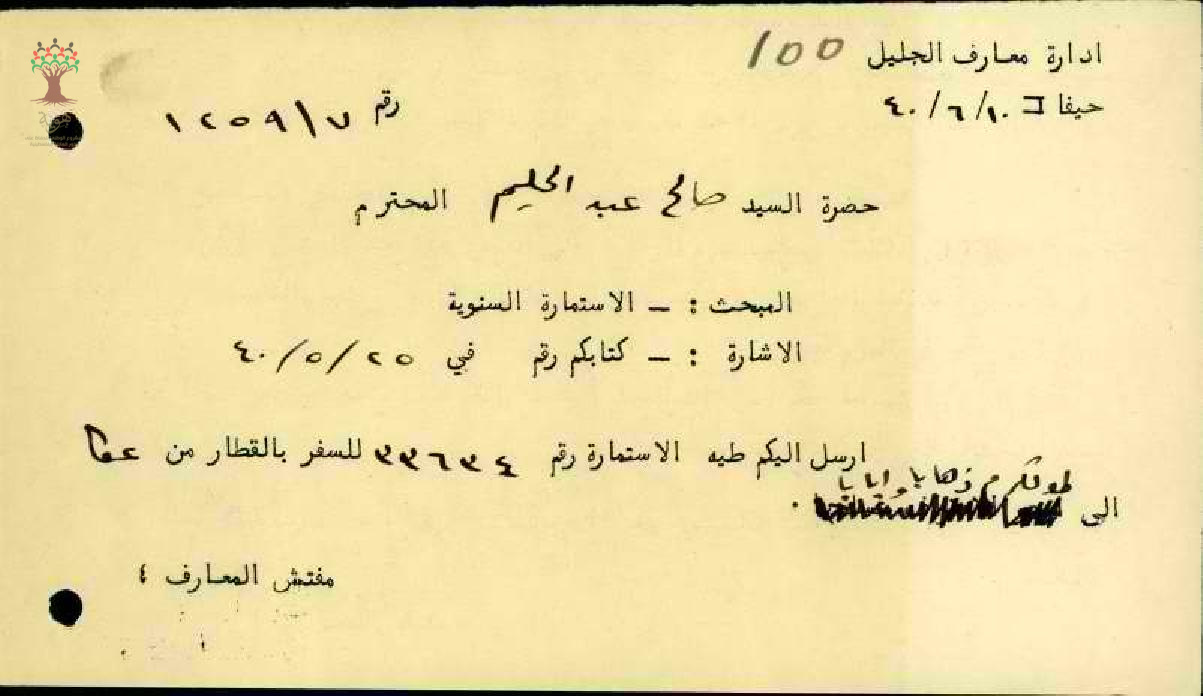 ادارة معارف الجليل 100
حيفا في ٤٠/٦/١٠
رقم ٧\١٢٥٩
حصرة السيد صالح عبد الحليم المحترم
المبحث : ــ الاستمارة السنوية
الاشارة : ــ كتابكم رقم في ٤٠/٥/٢٥
ارسل اليكم طيه الاستمارة رقم ٣٣٦٣٤ للسفر بالقطار من عكا
طولكرم ذهابا وايابا
الى .
مفتش المعارف ؛